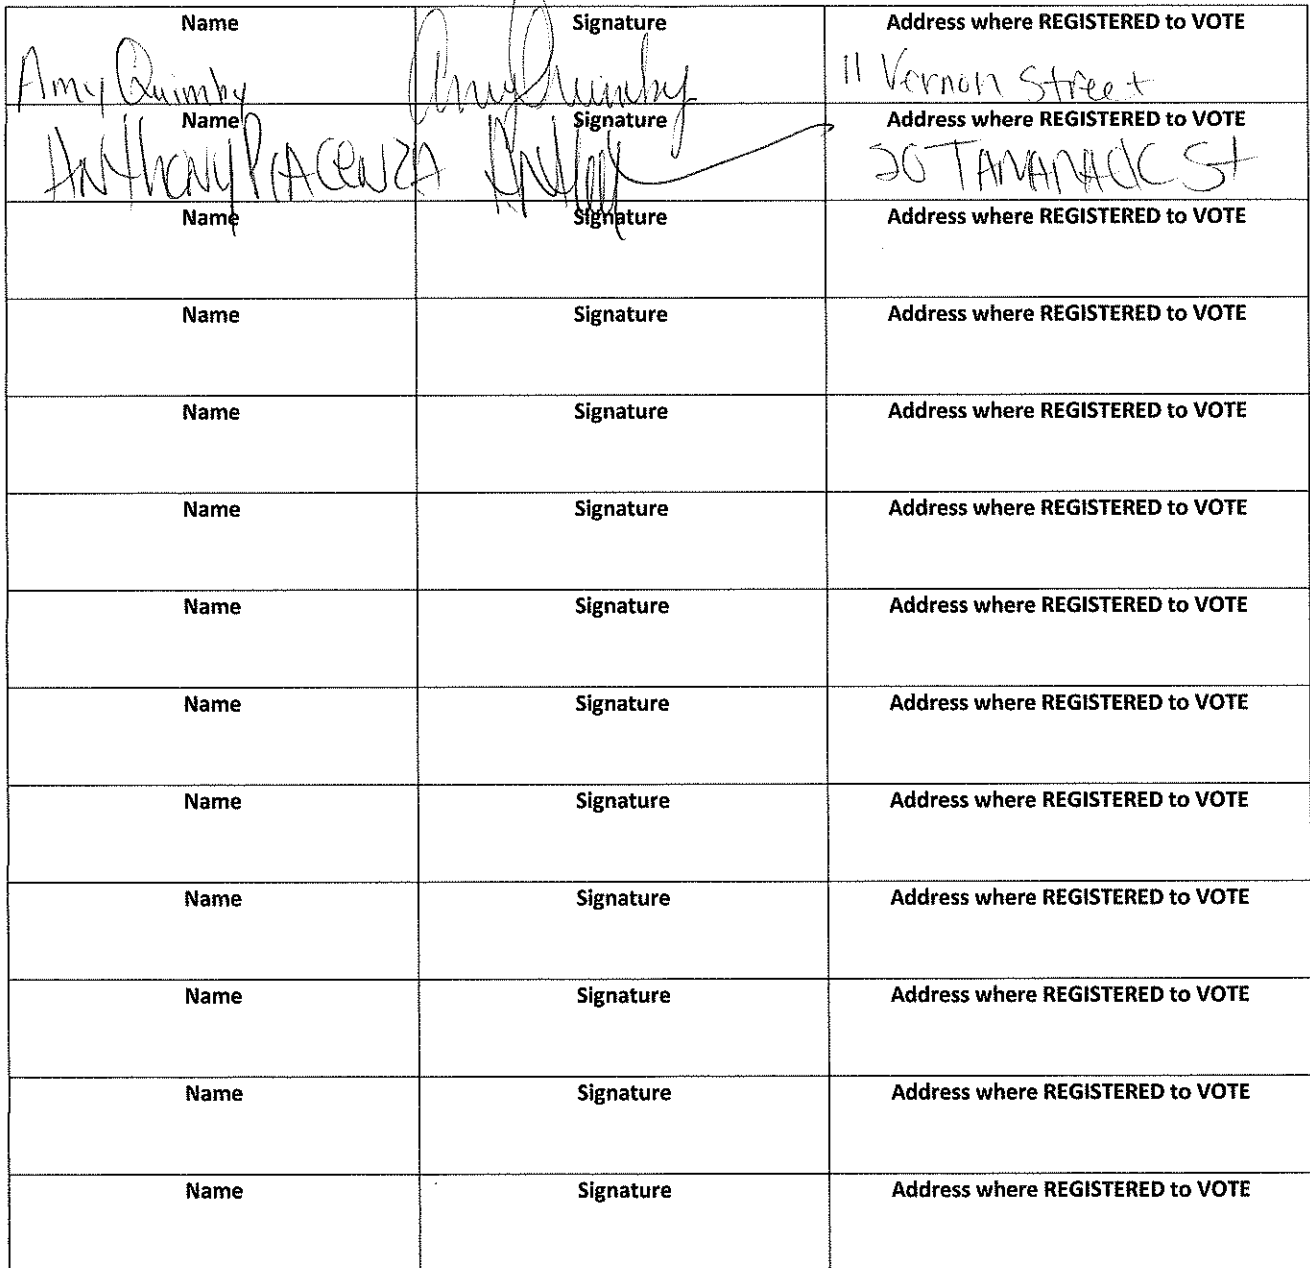 Name Signature Address where REGISTERED to VOTE
Amy Quimby Amy Quimby 11 Vernon Street
Name Signature Address where REGISTERED to VOTE
ANThONY PIACENZA 20 St
Name Signature Address where REGISTERED to VOTE
Name Signature Address where REGISTERED to VOTE
Name Signature Address where REGISTERED to VOTE
Name Signature Address where REGISTERED to VOTE
Name Signature Address where REGISTERED to VOTE
Name Signature Address where REGISTERED to VOTE
Name Signature Address where REGISTERED to VOTE
Name Signature Address where REGISTERED to VOTE
Name Signature Address where REGISTERED to VOTE
Name Signature Address where REGISTERED to VOTE
Name Signature Address where REGISTERED to VOTE